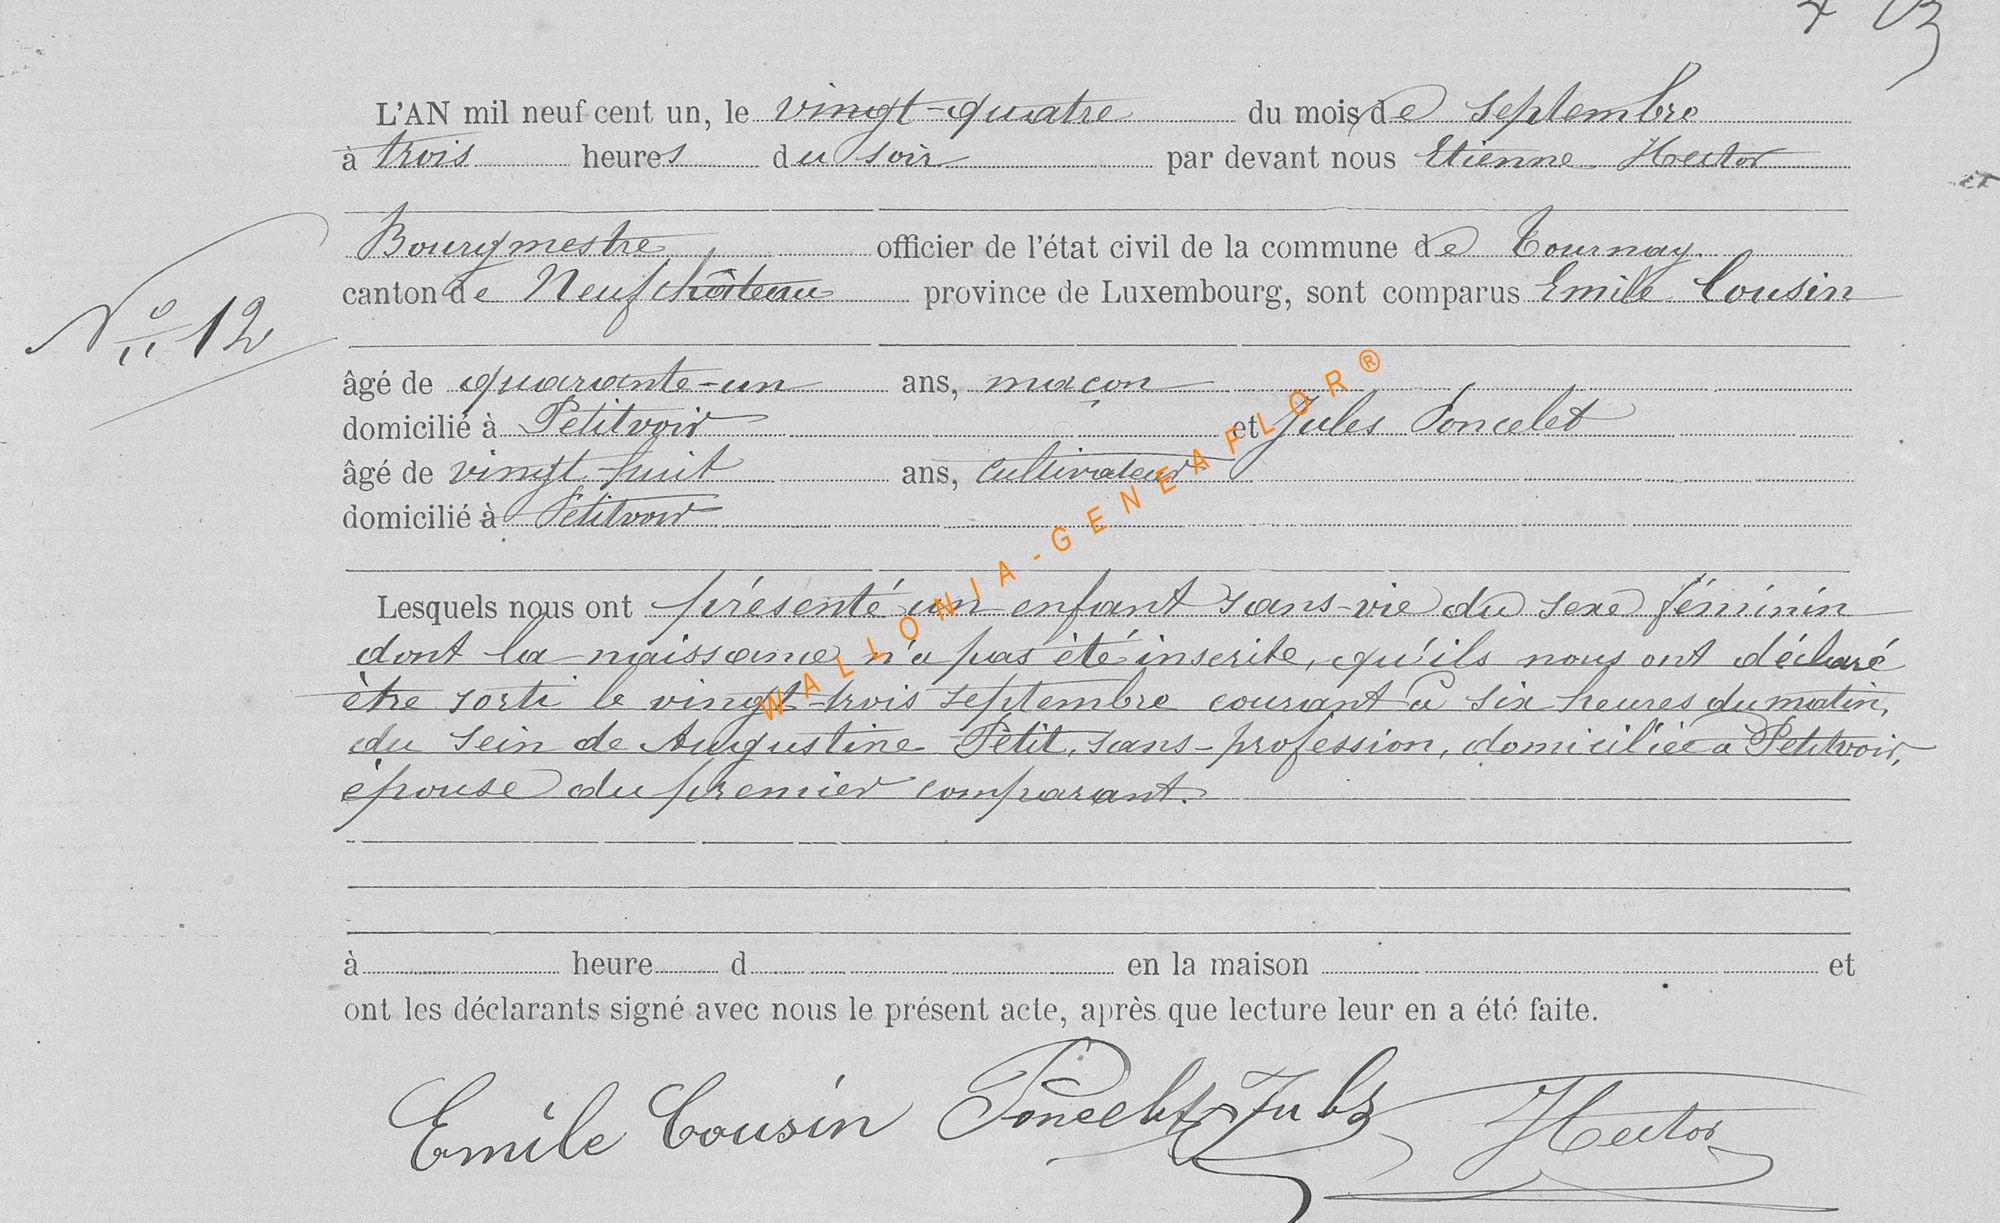 L'AN mil neuf cent un, le vingt-quatre du mois de septembre
à trois heures du soir par devant nous Etienne Hector
Bourgmestre officier de l'état civil de la commune de Tournay.
canton de Neufchâteau province de Luxembourg, sont comparus Emile Cousin
N° 12
âgé de quarante-un ans, maçon
domicilié à Petitvoir et Jules Poncelet
âgé de vingt-huit ans, cultivateur
domicilié à Petitvoir
Lesquels nous ont présenté un enfant sans-vie du sexe féminin
dont la naissance n'a pas été inscrite, qu'ils nous ont déclaré
être sorti le vingt-trois septembre courant à six heures du matin,
du sein de Augustine Petit, sans-profession, domiciliée à Petitvoir,
épouse du premier comparant.
à heure d en la maison et
ont les déclarants signé avec nous le présent acte, après que lecture leur en a été faite.
Emile Cousin Poncelet Jules Hector
WALLONIA-GENEAFLOR®